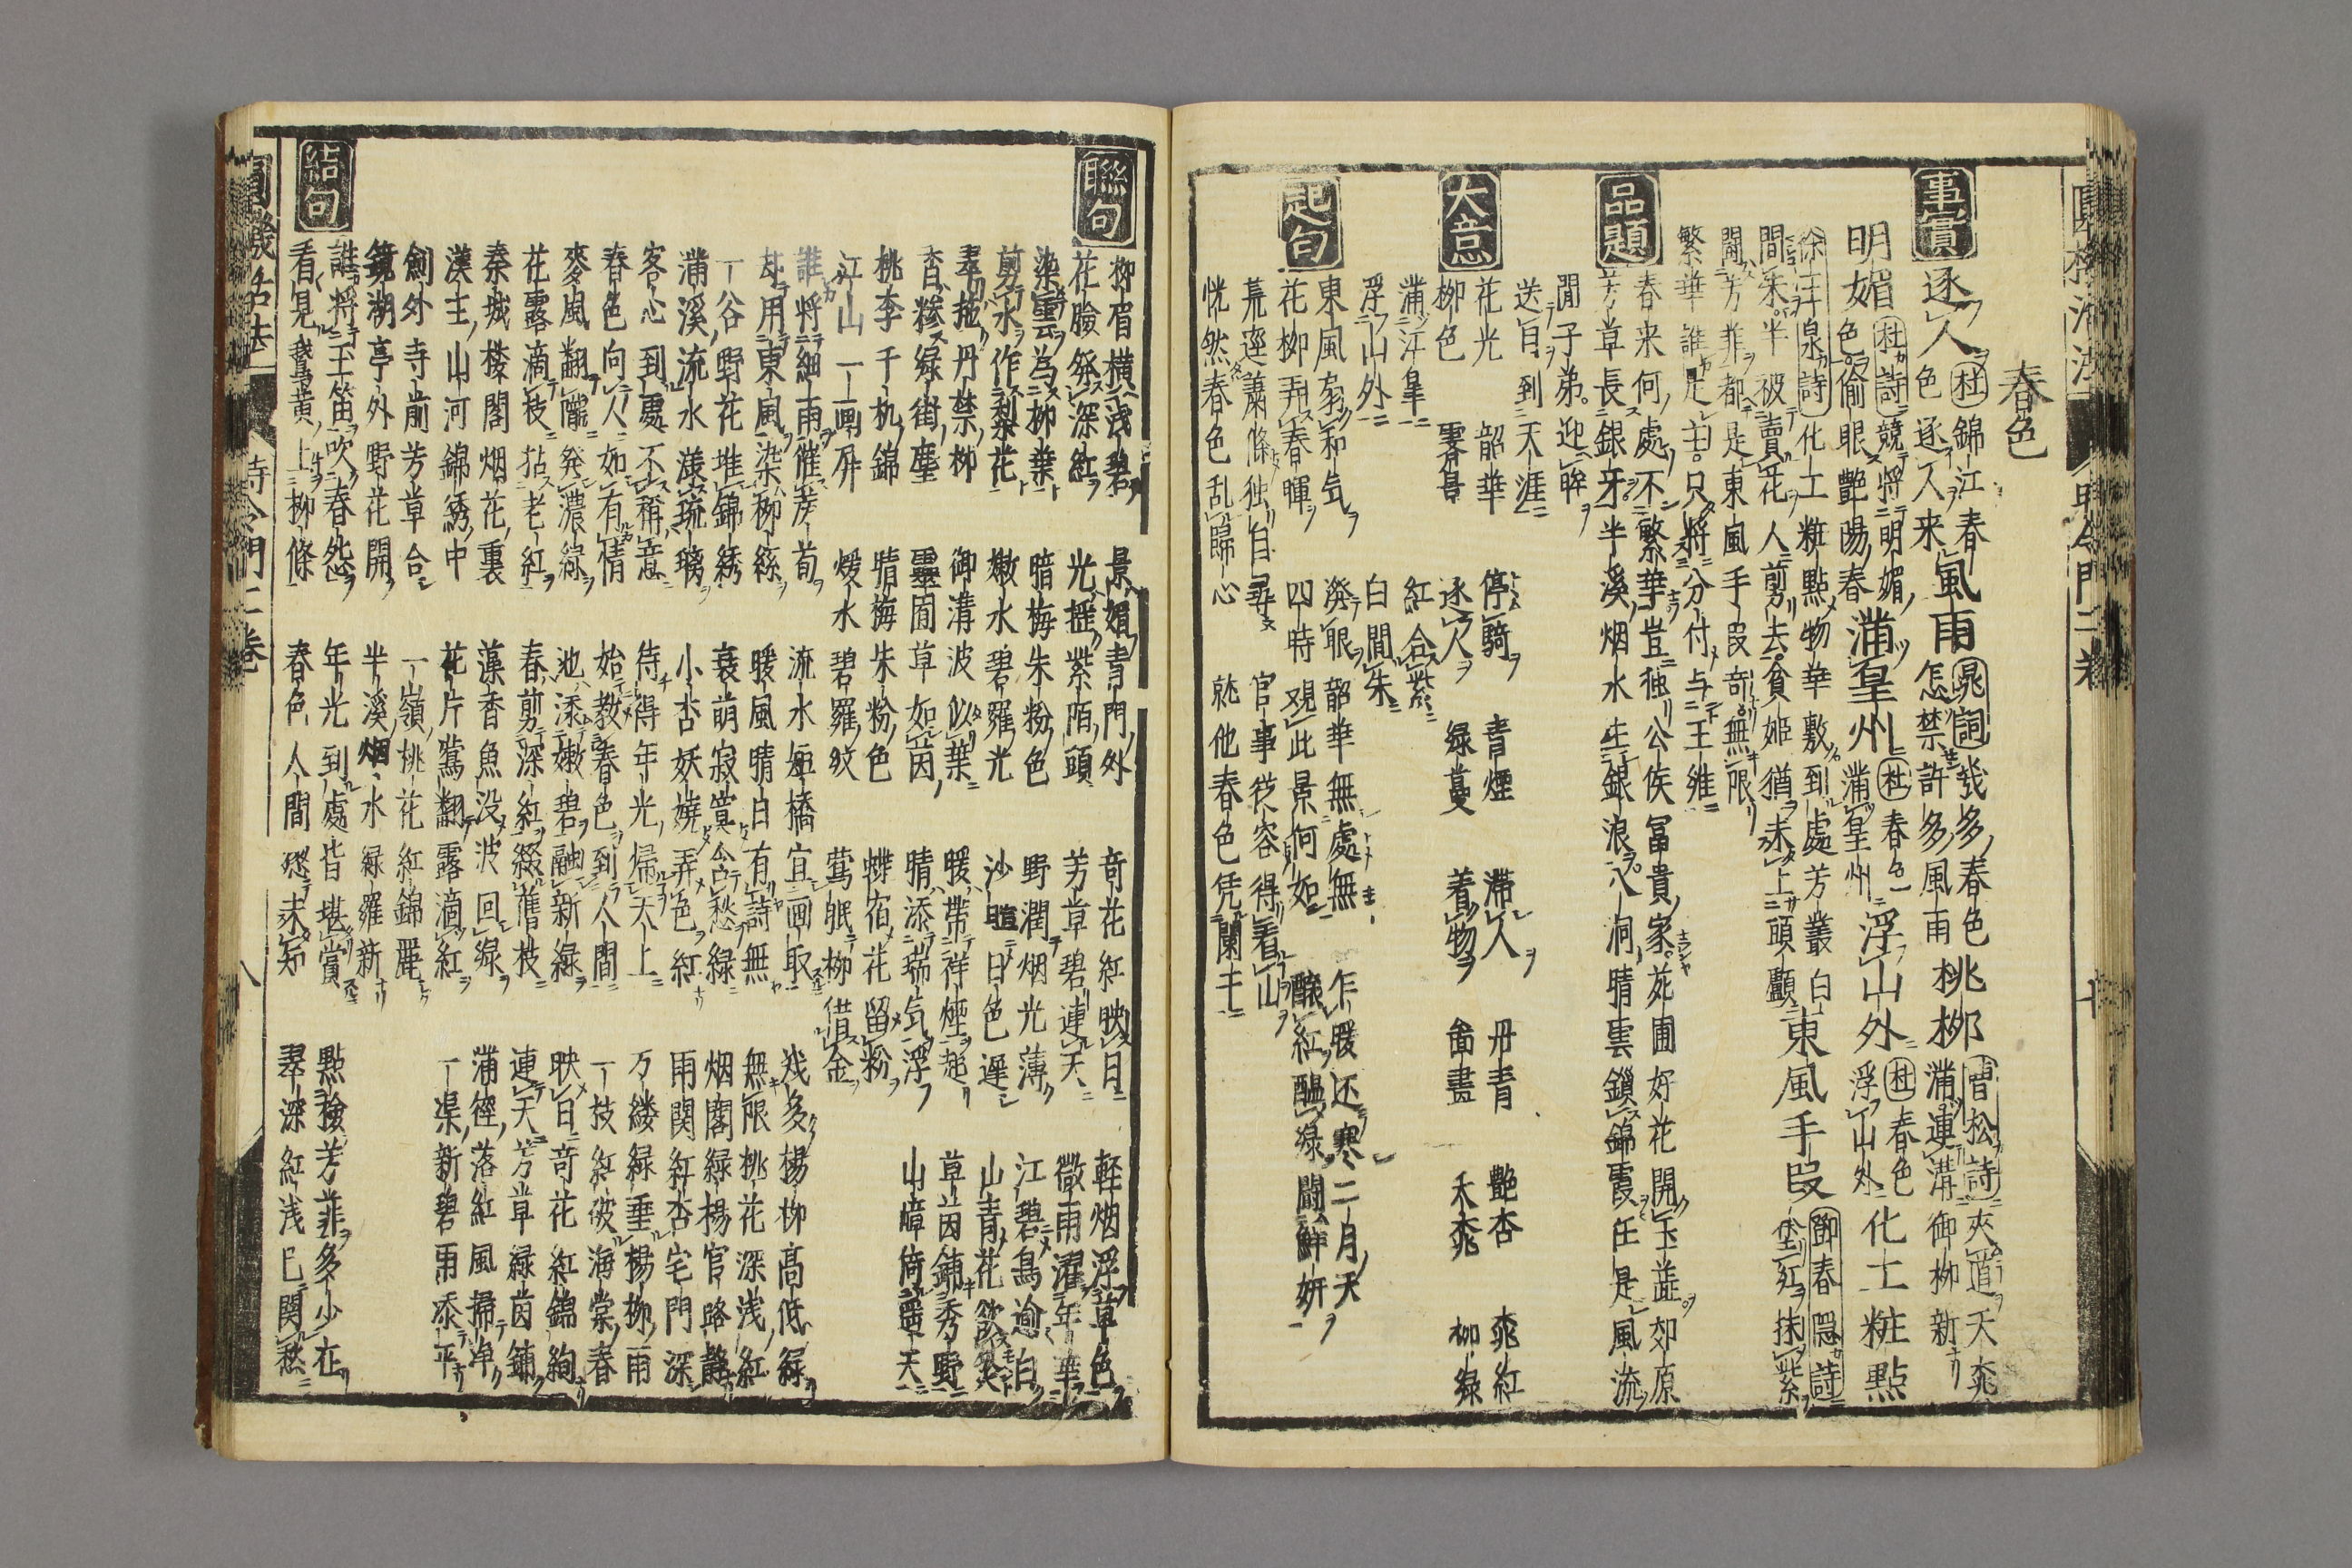 春色
事實
逐人
杜
錦江春
色逐人来
風雨
晁詞
幾多春色
怎禁許多風雨
桃柳
曹松詩
夾道天桃
滿連溝御柳新
明媚
杜詩
競将明媚
色偷眼艶陽春
滿皇州
杜
春色
滿皇州
浮山外
杜
春色
浮山外
化工粧點
泉詩
化工粧點物華敷到處芳叢白
間朱半被賣花人剪去貧姫猶未上頭顱
東風手段
鄧春隠詩
塗紅抹紫
閙芳菲都是東風手段奇無限
繁華誰是主只将分付与王維
品題
春来何處不繁華豈独公侯冨貴家苑圃好花開玉蘂郊原
芳草長銀牙半溪烟水生銀浪八洞晴雲鎖錦霞任是風流
閒子弟迎眸
送目到天涯
大意
花光 韶華 停騎 青煙 滞人 丹青 艶杏 桃紅
柳色 霽景 逐人 緑蔓 着物 啚畫 禾桃 柳緑
滿江皐 紅合紫
浮山外 白間朱
起句
東風扇和気 潑眼韶華無處無 乍暖还寒二月天
花柳弄春暉 四時覌此景何如 醸紅醖緑闘鮮妍
荒逕蕭條独自尋 官事従容得着山
恍然春色乱歸心 就他春色凭闌干
聯句
柳眉横浅碧 景媚青門外 奇花紅映日 軽烟浮草色
花臉發深紅 光揺紫陌頭 芳草碧連天 微雨濯年華
染雲為柳葉 暗梅朱粉色 野潤烟光薄 江碧鳥逾白
剪水作梨花 嫩水碧羅光 沙暄日色遅 山青花欲然
翠拖丹禁柳 御溝波似葉 暖帯祥煙起 草茵鋪秀野
香糝緑街塵 靈囿草如茵 晴添瑞気浮 山嶂倚遥天
桃李千机錦 晴梅朱粉色 蝶宿花留粉
江山一畫屏 煖水碧羅紋 鶯眠柳借金
誰将細雨催蔗荀 流水短橋宜画取 幾多楊柳高低緑
却用東風染柳絲 暖風晴日有詩無 無限桃花深浅紅
一谷野花堆錦綉 衰萌寂寞含愁緑 烟閣緑楊官路静
滿溪流水漾琉璃 小杏妖嬈弄色紅 雨関紅杏宅門深
客心到處不稱意 待得年光帰天上 万縷緑垂楊柳雨
春色向人如有情 始教春色到人間 一枝紅破海棠春
麥風翻隴発濃緑 池添嫩碧融新緑 映日奇花紅錦絢
花露滴枝拈老紅 春剪深紅綴舊枝 連天芳草緑茵鋪
秦城楼閣烟花裏 藻香魚没波回緑 滿徑落紅風掃净
漢主山河錦綉中 花片鶯翻露滴紅 一渠新碧雨添平
劍外寺前芳草合 一嶺桃花紅錦麗
鏡湖亭外野花開 半溪烟水緑羅新
結句
誰将玉笛吹春怨 年光到處皆堪賞 點檢芳菲多少在
看見鵞黄上柳條 春色人間愁未知 翠深紅浅已関愁